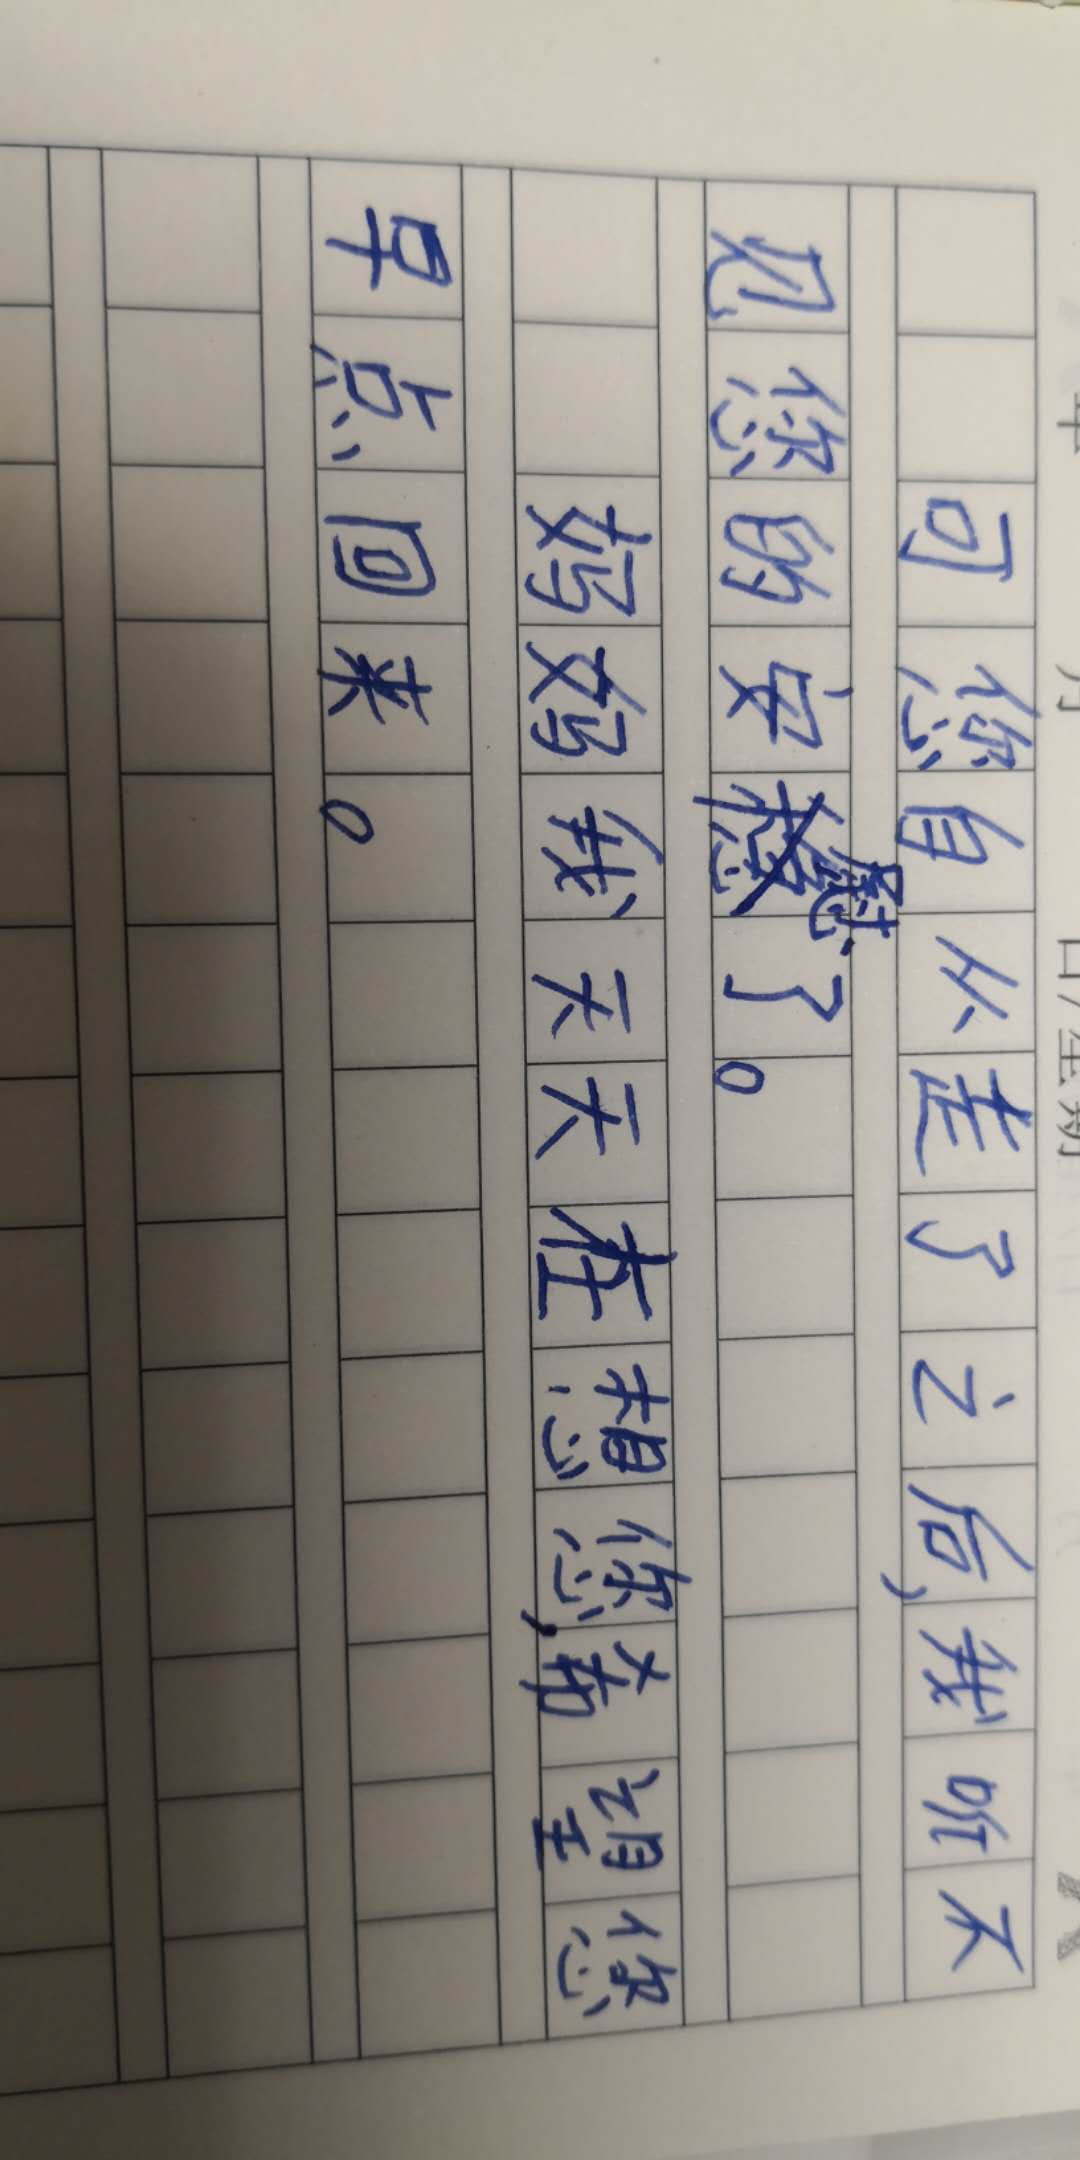 年 月 日/星期
可您自从走了之后,我听不
见您的安慰了。
妈妈我天天在想您,希望您
早点回来。